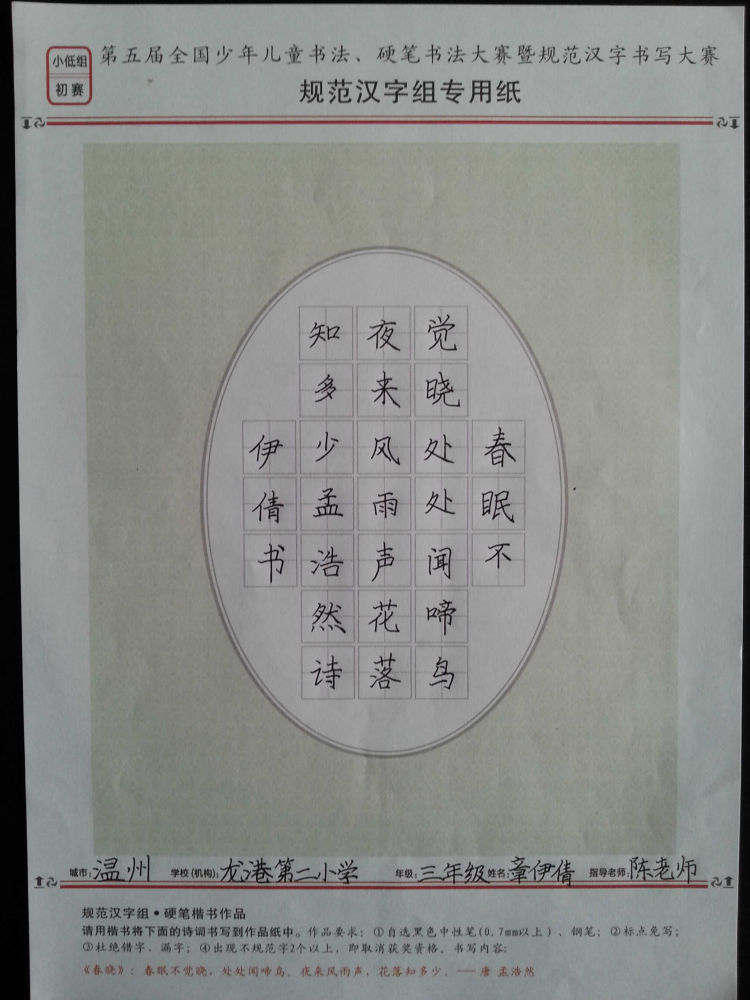 小低组
初赛
第五届全国少年儿童书法、硬笔书法大赛暨规范汉字书写大赛
规范汉字组专用纸
春眠不
觉晓处处闻啼鸟
夜来风雨声花落
知多少孟浩然诗
伊倩书
城市:温州 学校(机构):龙港第二小学 年级:三年级 姓名:章伊倩 指导老师:陈老师
规范汉字组•硬笔楷书作品
请用楷书将下面的诗词书写到作品纸中。作品要求:①自选黑色中性笔(0.7mm以上)、钢笔;②标点免写;
③杜绝错字、漏字;④出现不规范字2个以上,即取消获奖资格。书写内容:
《春晓》:春眠不觉晓,处处闻啼鸟。夜来风雨声,花落知多少。——唐 孟浩然